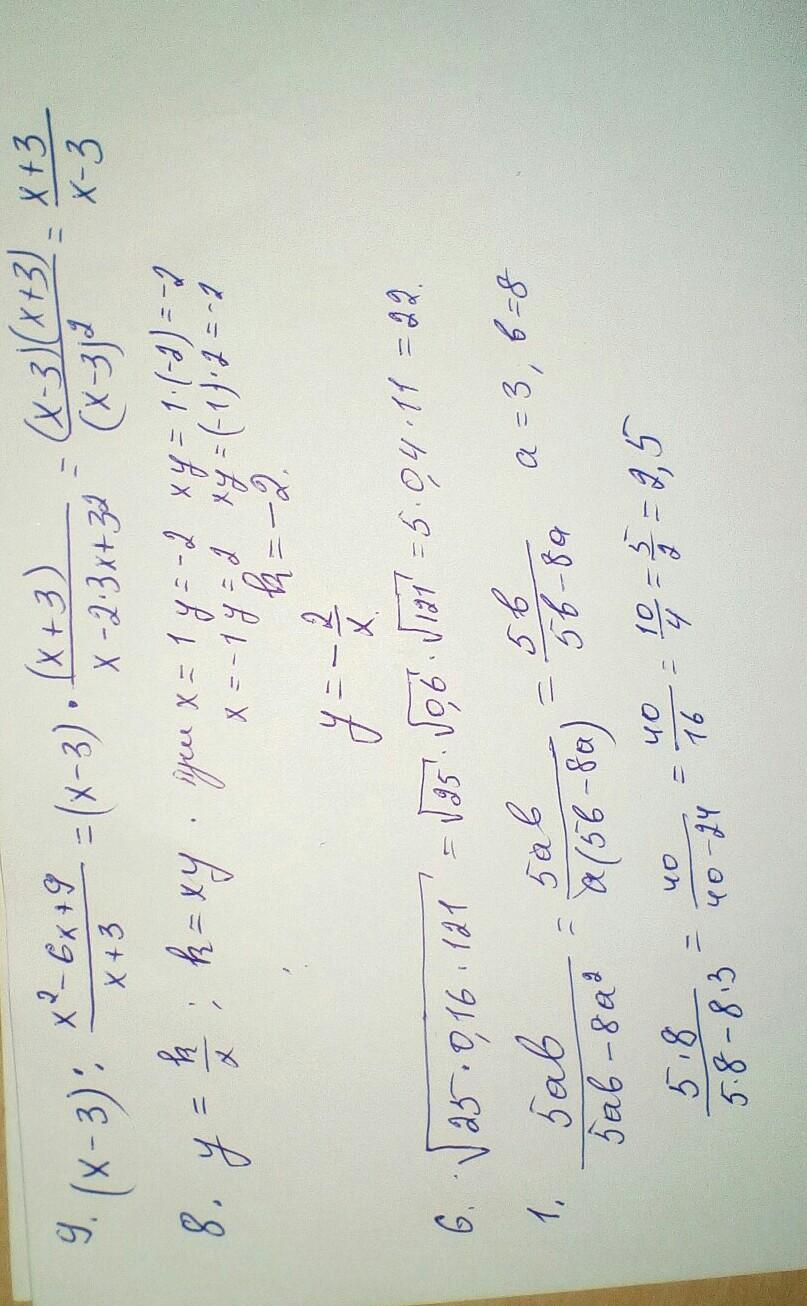 9. (x-3) : \frac{x²-6x+9}{x+3} = (x-3) · \frac{(x+3)}{x-2·3x+3²} = \frac{(x-3)(x+3)}{(x-3)²} = \frac{x+3}{x-3}
8. y = \frac{k}{x} ; k = xy · при x=1 y=-2 xy=1·(-2)=-2
x=-1 y=2 xy=(-1)·2=-2
k=-2.
y=-\frac{2}{x}.
6. √25·0,16·121 = √25 · √0,6 · √121 = 5·0,4·11 = 22.
1. \frac{5ab}{5ab-8a²} = \frac{5ab}{a(5b-8a)} = \frac{5b}{5b-8a} a=3, b=8
\frac{5·8}{5·8-8·3} = \frac{40}{40-24} = \frac{40}{16} = \frac{10}{4} = \frac{5}{2} = 2,5